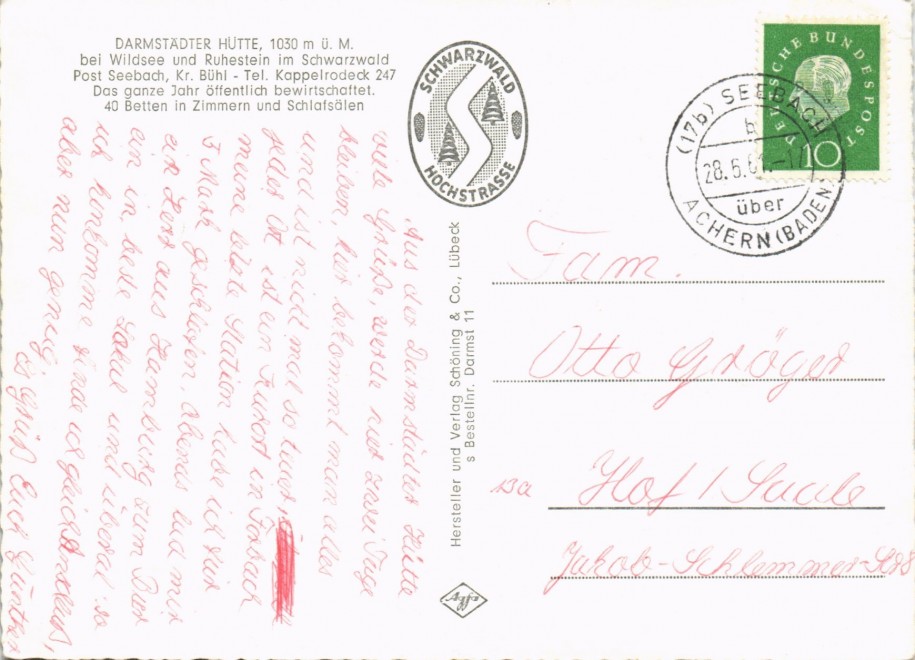 DARMSTÄDTER HÜTTE, 1030 m ü. M.
bei Wildsee und Ruhestein im Schwarzwald
Post Seebach, Kr. Bühl - Tel. Kappelrodeck 247
Das ganze Jahr öffentlich bewirtschaftet.
40 Betten in Zimmern und Schlafsälen
SCHWARZWALD
HOCHSTRASSE
DEUTSCHE BUNDESPOST
10
(17b) SEEBACH
b
28.6.61.-17
über
ACHERN (BADEN)
Aus der Darmstädter Hütte
viele Grüße, werde hier zwei Tage
bleiben, hier bekommt man alles
und ist nicht mal so teuer
jeder Ort ist ein Kurort in Forbach
meine erste Station habe ich für
3 Mark geschlafen, abends lud mir
ein Herr aus Hamburg zum Bier
ein in beste Lokal und überal so
ich hinkomme finde ich gleich Anschluß,
aber nun genug
Es grüßt Euch Günther
Hersteller und Verlag Schöning & Co., Lübeck
s Bestellnr. Darmst 11
Agfa
Fam.
Otto Gröger
13a Hof / Saale
Jakob-Schlemmer-Str 8